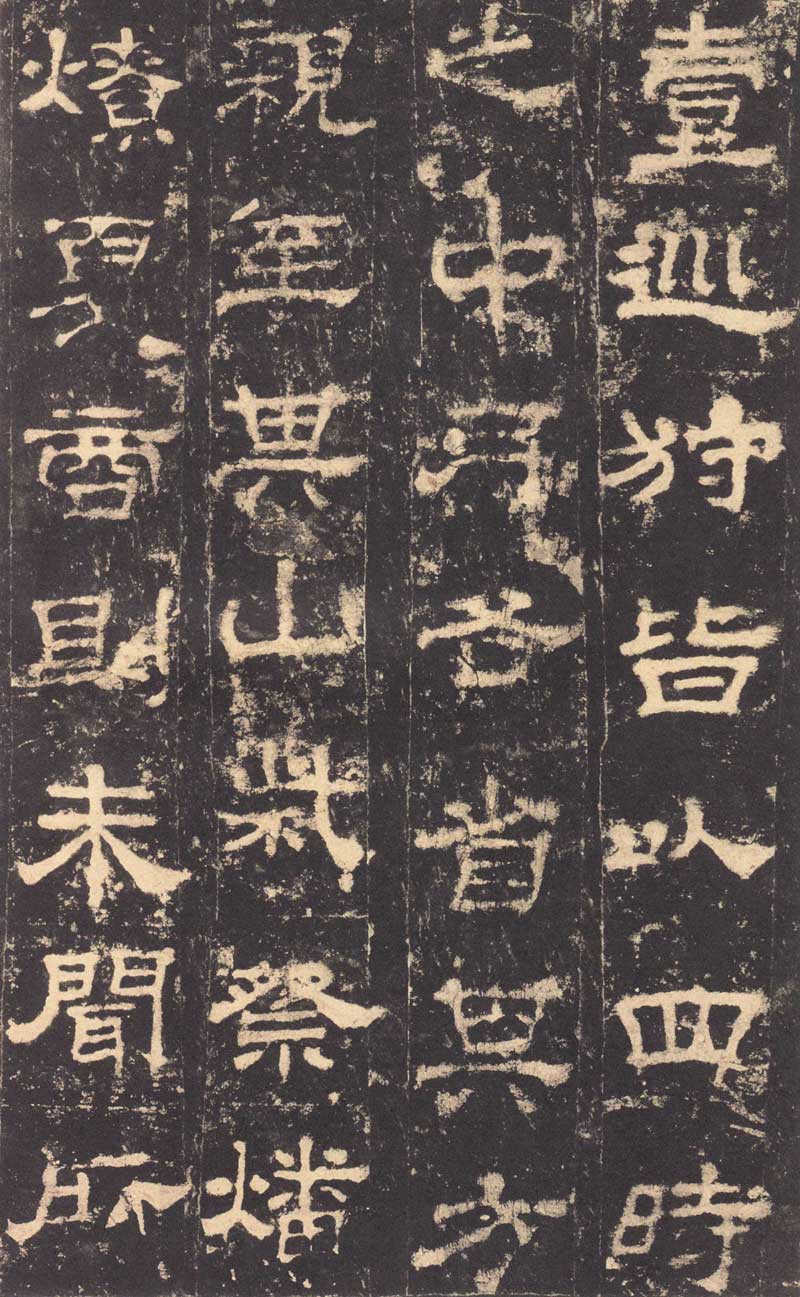 壹巡狩皆以四時
之中月各省其方
親至其山柴祭燔
燎夏商則未聞所